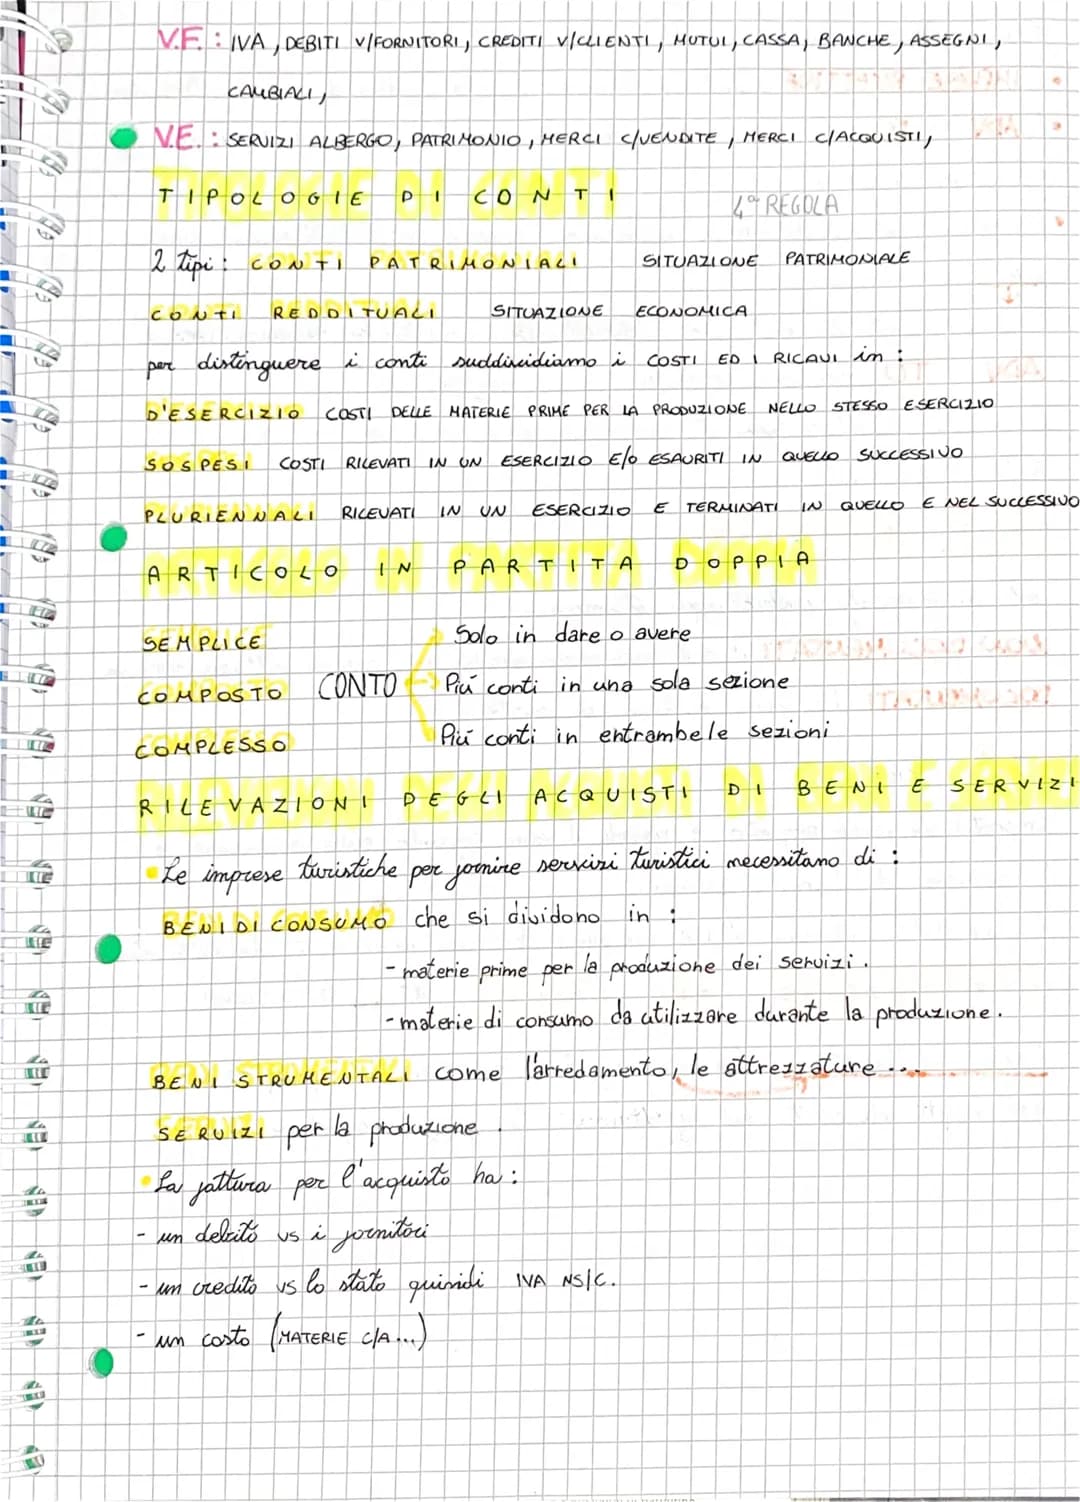 V.F. : IVA, DEBITI V/FORNITORI, CREDITI V/CLIENTI, MUTUI, CASSA, BANCHE, ASSEGNI,
CAMBIALI,
V.E. : SERVIZI ALBERGO, PATRIMONIO, MERCI C/VENDITE, MERCI C/ACQUISTI,
TIPOLOGIE DI CONTI
4ª REGOLA
2 tipi : CONTI PATRIMONIALI SITUAZIONE PATRIMONIALE
CONTI REDDITUALI SITUAZIONE ECONOMICA
per distinguere i conti suddividiamo i COSTI ED I RICAVI in :
D'ESERCIZIO COSTI DELLE MATERIE PRIME PER LA PRODUZIONE NELLO STESSO ESERCIZIO
SOSPESI COSTI RILEVATI IN UN ESERCIZIO E/O ESAURITI IN QUELLO SUCCESSIVO
PLURIENNALI RILEVATI IN UN ESERCIZIO E TERMINATI IN QUELLO E NEL SUCCESSIVO
ARTICOLO IN PARTITA DOPPIA
SEMPLICE Solo in dare o avere
COMPOSTO CONTO Più conti in una sola sezione
COMPLESSO Più conti in entrambe le sezioni
RILEVAZIONI DEGLI ACQUISTI DI BENI E SERVIZI
Le imprese turistiche per fornire servizi turistici necessitano di :
BENI DI CONSUMO che si dividono in :
- materie prime per la produzione dei servizi.
- materie di consumo da utilizzare durante la produzione.
BENI STRUMENTALI come l'arredamento, le attrezzature ...
SERVIZI per la produzione .
La fattura per l'acquisto ha :
- un debito vs i fornitori
- un credito vs lo stato quindi IVA NS/C.
- un costo (MATERIE C/A...)